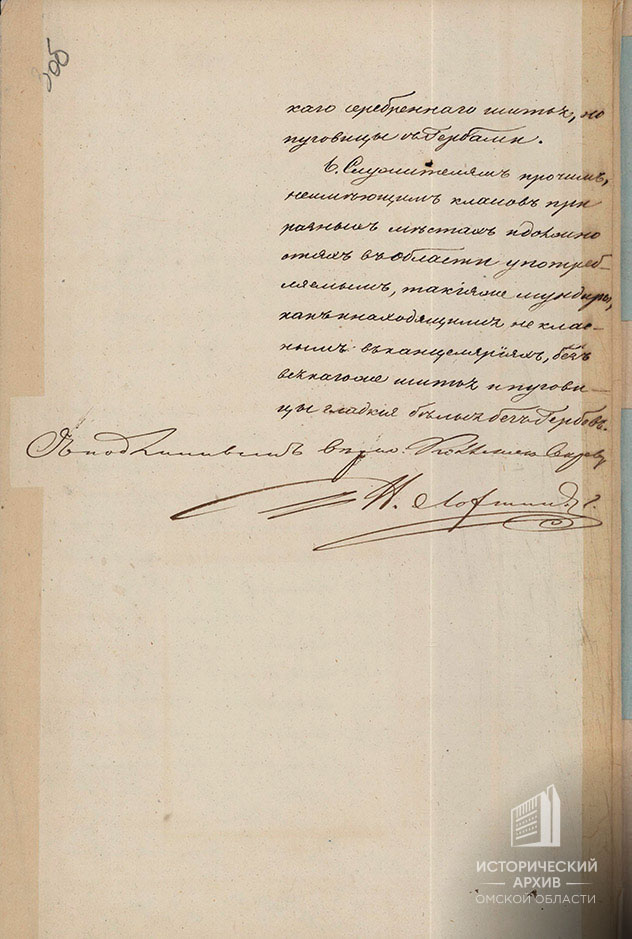 305
каго серебреннаго шитья, но
пуговицы съ Гербами.
6. Служителямъ прочимъ,
неимѣющимъ класовъ при
разныхъ мѣстахъ и должно
стяхъ въ области употреб-
ляемымъ, такіяже мундиры,
какъ и находящимся не клас-
нымъ въ канцеляріяхъ, безъ
всякагоже шитья и пугови-
цы гладкія бѣлыя безъ Гербовъ.
Съ подлиннымъ вѣрно.
Н.
ИСТОРИЧЕСКИЙ
АРХИВ
ОМСКОЙ ОБЛАСТИ